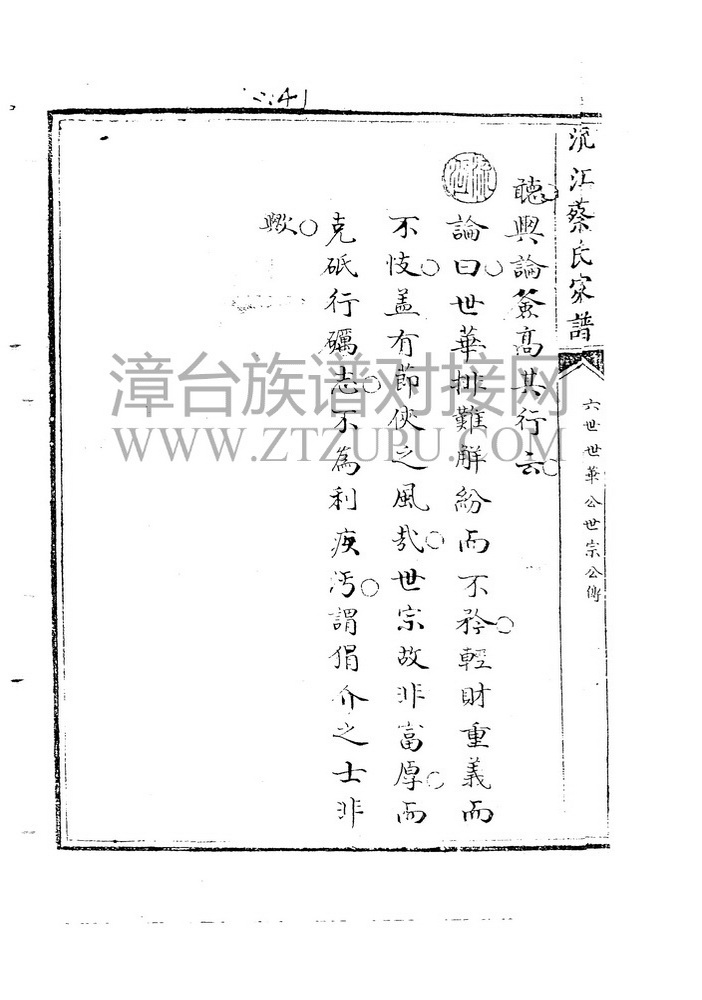 沉江蔡氏家譜
六世世華公世宗公傳
聽輿論僉高其行云
論曰世華排難解紛而不矜輕財重義而
不忮盖有節俠之風哉世宗故非富厚而
克砥行礪志不為利疚汚謂狷介之士非
歟
漳台族谱对接网
WWW.ZTZUPU.COM